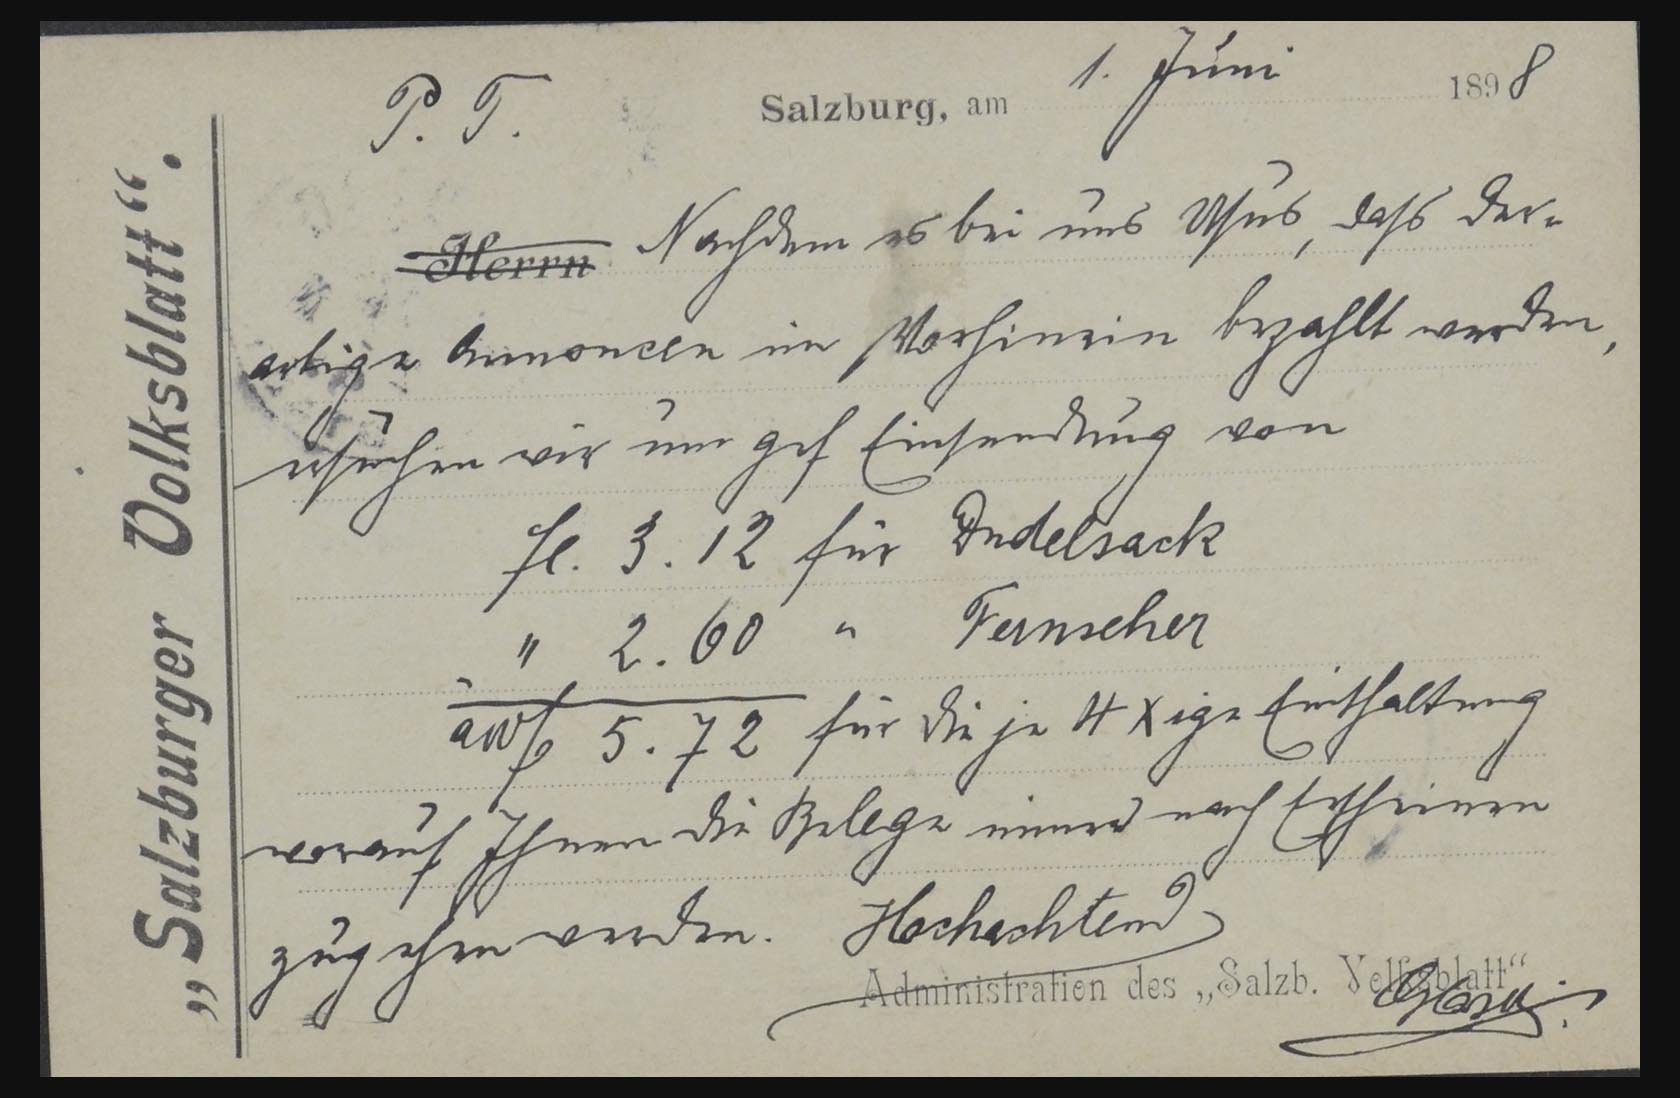 „Salzburger Volksblatt“.
Salzburg, am 1. Juni 1898
P. T.
Herrn Nachdem es bei uns Usus, dass der-
artige Annoncen im Vorhinein bezahlt werden,
ersuchen wir um gef Einsendung von
fl. 3.12 für Dudelsack
" 2.60 " Fernseher
öWf 5.72 für die je 4 X ige Einschaltung
worauf Ihnen die Belege immer nach Erscheinen
zugehen werden. Hochachtend
Administration des „Salzb. Volksblatt“